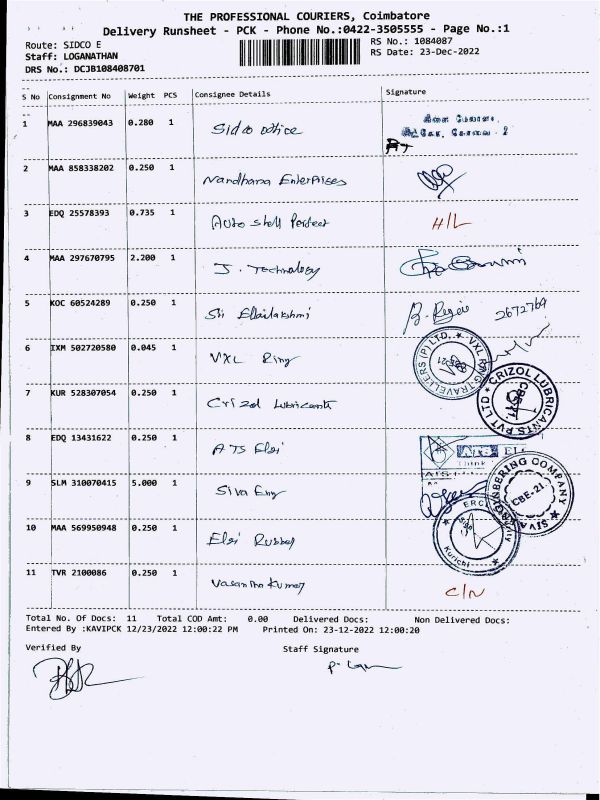 THE PROFESSIONAL COURIERS, Coimbatore
Delivery Runsheet - PCK - Phone No.:0422-3505555 - Page No.:1
Route: SIDCO E
RS No.: 1084087
Staff: LOGANATHAN
RS Date: 23-Dec-2022
DRS No.: DCJB108408701
S No Consignment No Weight PCS Consignee Details Signature
1 MAA 296839043 0.280 1 Sidco office
2 MAA 858338202 0.250 1 Nandhana Enterprises
3 EDQ 25578393 0.735 1 Auto shell Perfect H/L
4 MAA 297670795 2.200 1 J. Technology
5 KOC 60524289 0.250 1 Sri Ellailakshmi 2672769
6 IXM 502720580 0.045 1 VXL Ring
VXL RING TRAVELLERS (P) LTD,
7 KUR 528307054 0.250 1 Crizol Lubricants
CRIZOL LUBRICANTS PVT LTD
8 EDQ 13431622 0.250 1 ATS Elgi
ATS EL
9 SLM 310070415 5.000 1 Siva Eng
SIVA ENGINEERING COMPANY
CBE-21.
10 MAA 569950948 0.250 1 Elgi Rubber
Kurichi
11 TVR 2100086 0.250 1 Vasantha Kumar C/N
Total No. Of Docs: 11 Total COD Amt: 0.00 Delivered Docs: Non Delivered Docs:
Entered By :KAVIPCK 12/23/2022 12:00:22 PM Printed On: 23-12-2022 12:00:20
Verified By Staff Signature